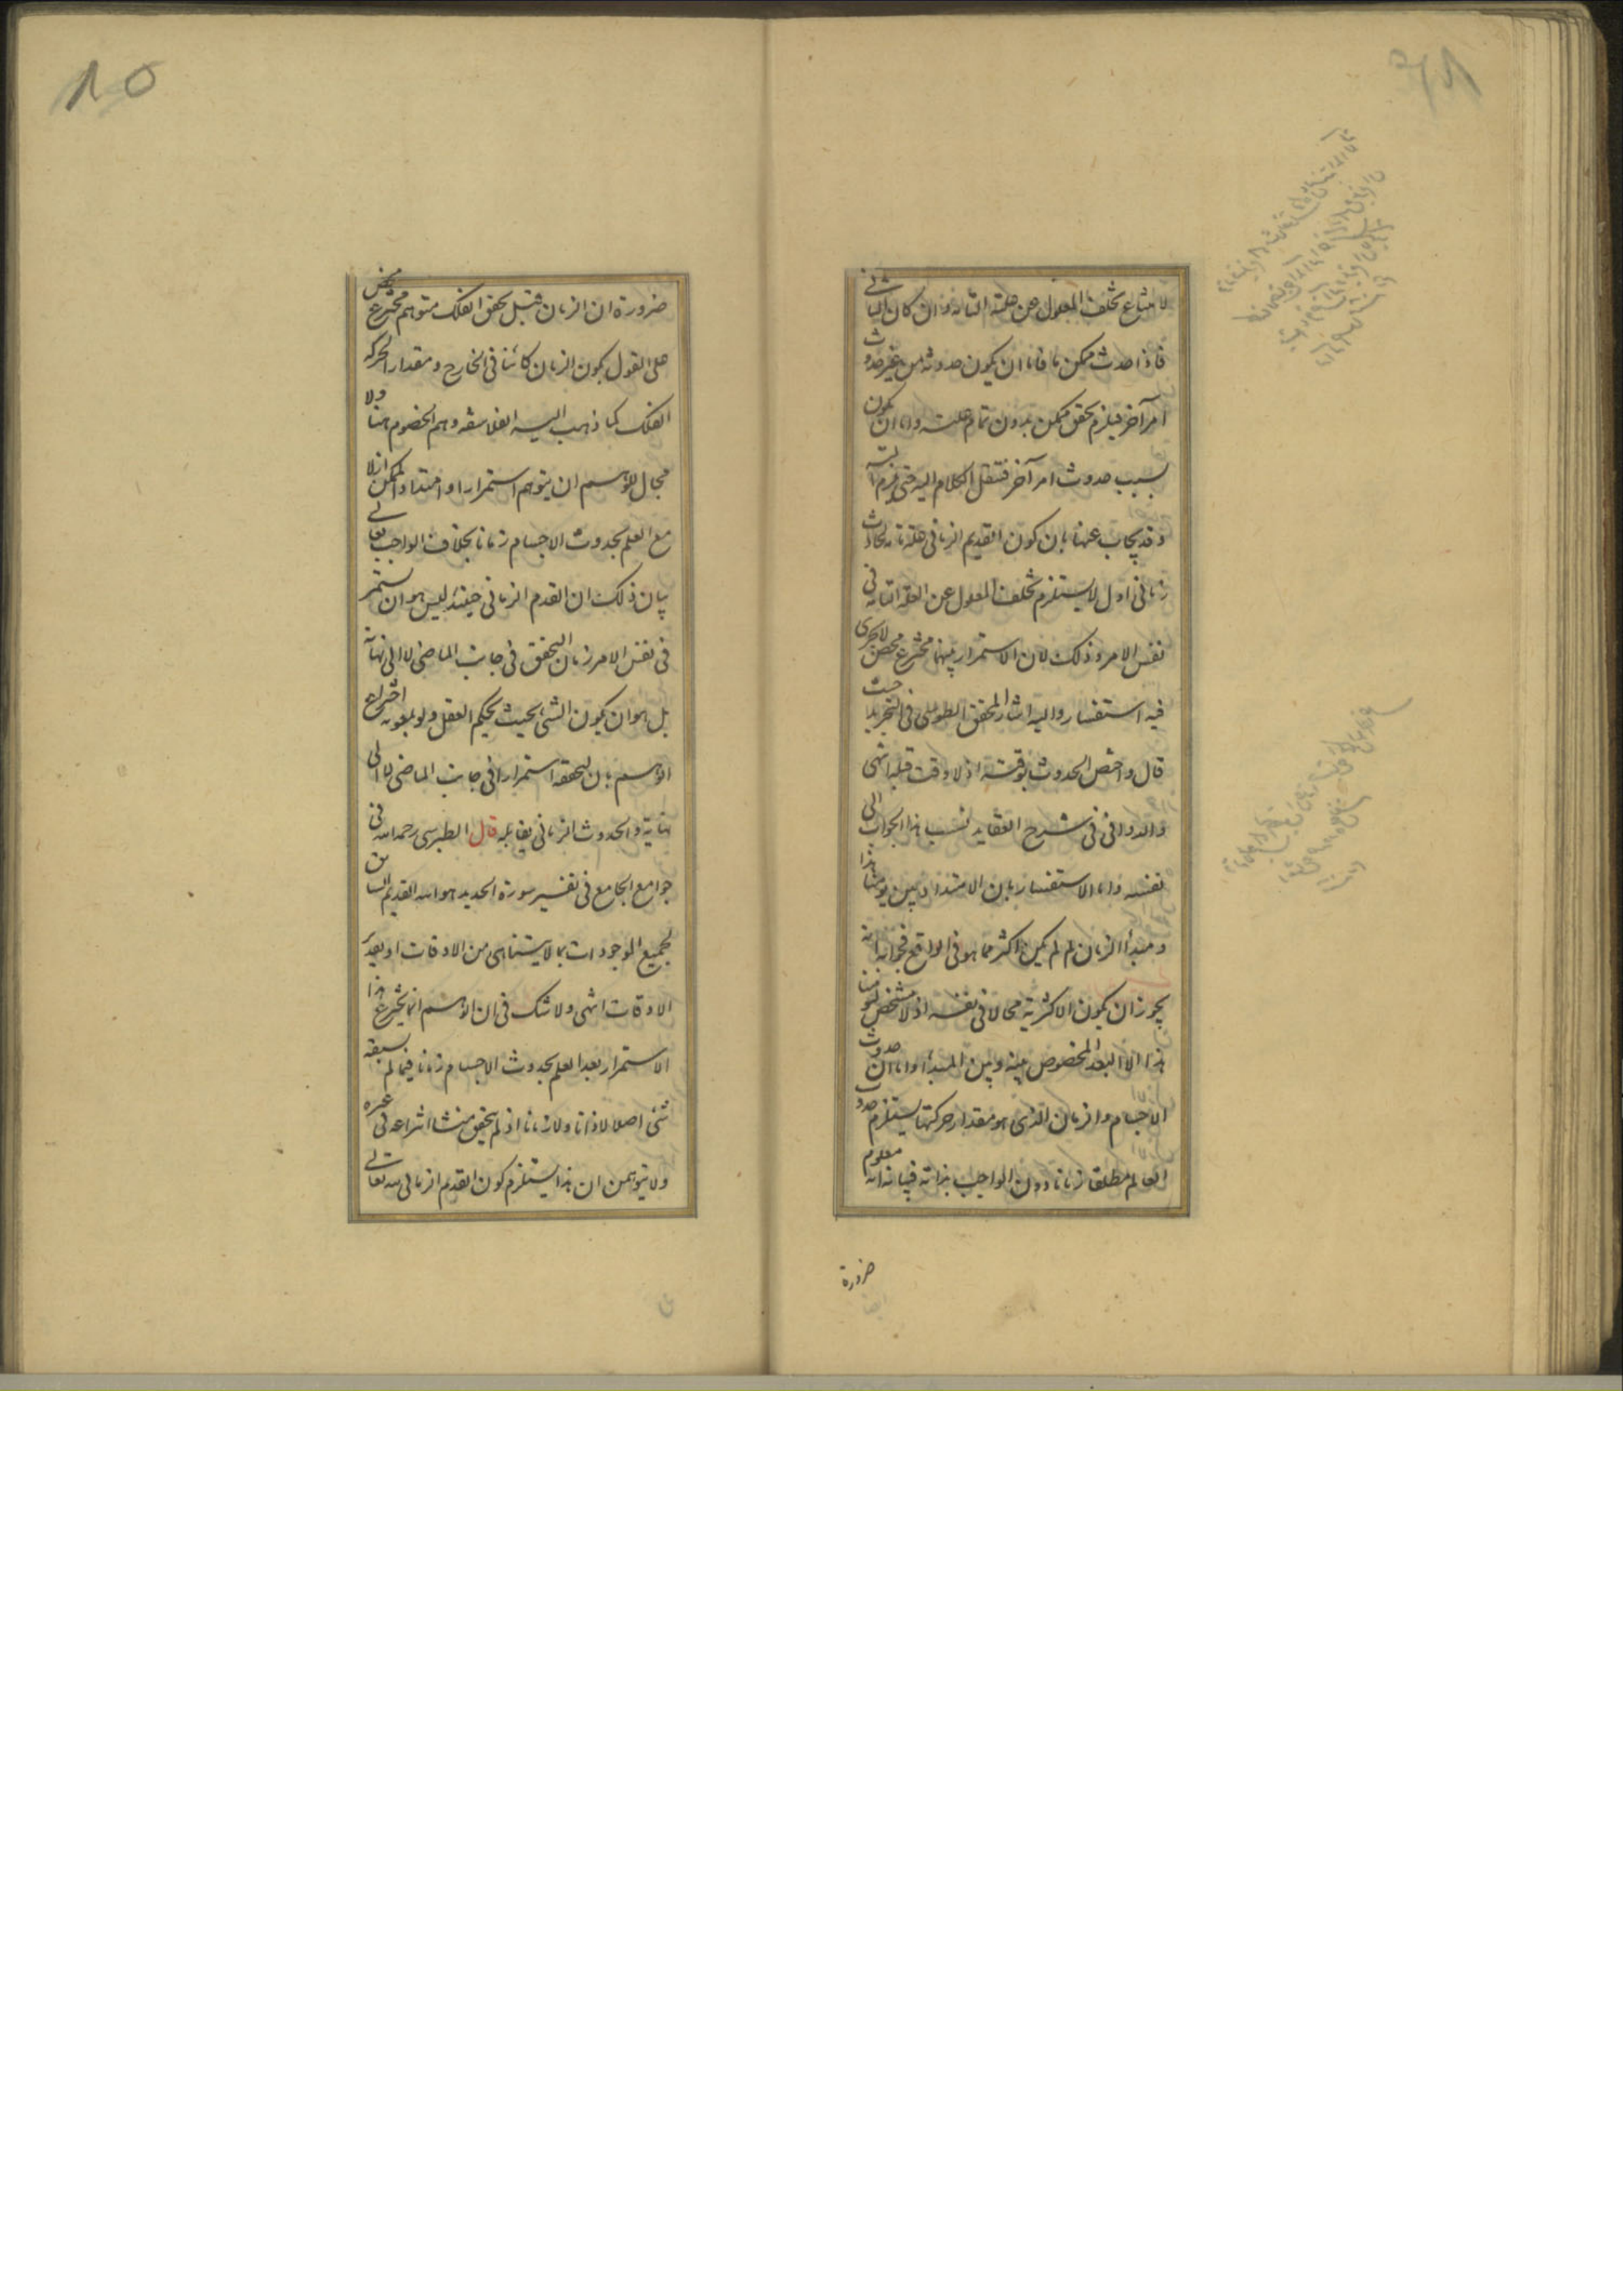 لامتناع تخلف المعلول عن علته التامة وان كان الثانى
فاذا حدث ممكن ما فاما ان يكون حدوثه من غير حدوث
امر آخر فيلزم تحقق ممكن بدون تمام علته واما ان يكون
بسبب حدوث امر آخر فننقل الكلام اليه حتى يلزم التسـ
وقد يجاب عنها بان كون القديم الزمانى علة تامة لحادث
زمانى اول لا يستلزم تخلف المعلول عن العلة التامة فى
نفس الامر وذلك لان الاستمرار بينهما مخترع محض لا يجرى
فيه استفسار واليه اشار المحقق الطوسى فى التجريد حيث
قال واختص الحدوث بوقته اذ لا وقت قبله انتهى
والدوانى فى شرح العقايد نسب هذا الجواب الى
نفسه واما الاستفسار بان الامتداد بين يومنا هذا
ومبدأ الزمان لم لم يكن اكثر مما هو فى الواقع فجوابه انه
يجوز ان يكون الاكثرية محالا فى نفسه اذ لا مشخص ليومنا
هذا الا البعد المخصوص بينه وبين المبدأ واما ان حدوث
الاجسام والزمان الذى هو مقدار حركتها يستلزم حدوث
العالم مطلقا زمانا دون الواجب بذاته فبيانه انه معلوم
ضرورة
ضرورة ان الزمان قبل تحقق الفلك متوهم مخترع محض
على القول بكون الزمان كائنا فى الخارج ومقدارا لحركة
الفلك كما ذهب اليه الفلاسفه وهم الخصوم هنا ولا
مجال للوهم ان يتوهم استمرارا وامتدادا لممكن ازلا
مع العلم بحدوث الاجسام زمانا بخلاف الواجب تعالى
بيان ذلك ان القدم الزمانى حينئذ ليس هو ان يستمر
فى نفس الامر زمان التحقق فى جانب الماضى لا الى نهاية
بل هو ان يكون الشئ بحيث يحكم العقل ولو بمعونة اختراع
الوهم بان لتحققه استمرارا فى جانب الماضى لا الى
نهاية والحدوث الزمانى يقابله قال الطبرسى رحمه الله فى
جوامع الجامع فى تفسير سورة الحديد هو الله القديم السابق
لجميع الموجودات بما لا يتناهى من الاوقات او تقدير
الاوقات انتهى ولا شك فى ان الوهم انما يخترع هذا
الاستمرار بعد العلم بحدوث الاجسام زمانا فيما لم يسبقه
شئ اصلا لا ذاتا ولا زمانا اذ لم يتحقق منشا انتزاعه فى غيره
ولا يتوهمن ان هذا يستلزم كون القديم الزمانى لله تعالى